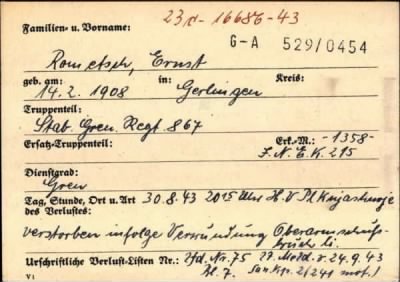 23d-16686-43
Familien- u. Vorname:
G-A 529/0454
Rometsch, Ernst
geb. am: in: Kreis:
14.2.1908 Gerlingen
Truppenteil:
Stab Gren. Regt. 867
Ersatz-Truppenteil: Erk.-M.: -1358-
J.N.E.K. 215
Dienstgrad:
Gren
Tag, Stunde, Ort u. Art 30.8.43 20 15 Uhr H.V.Pl.
des Verlustes:
verstorben infolge Verwundung Oberarmschuß-
bruch li.
Urschriftliche Verlust-Listen Nr.: lfd. Nr. 75 v. 24.9.43
Bl. 7. San. Kp. 2/241 mot.)
V1